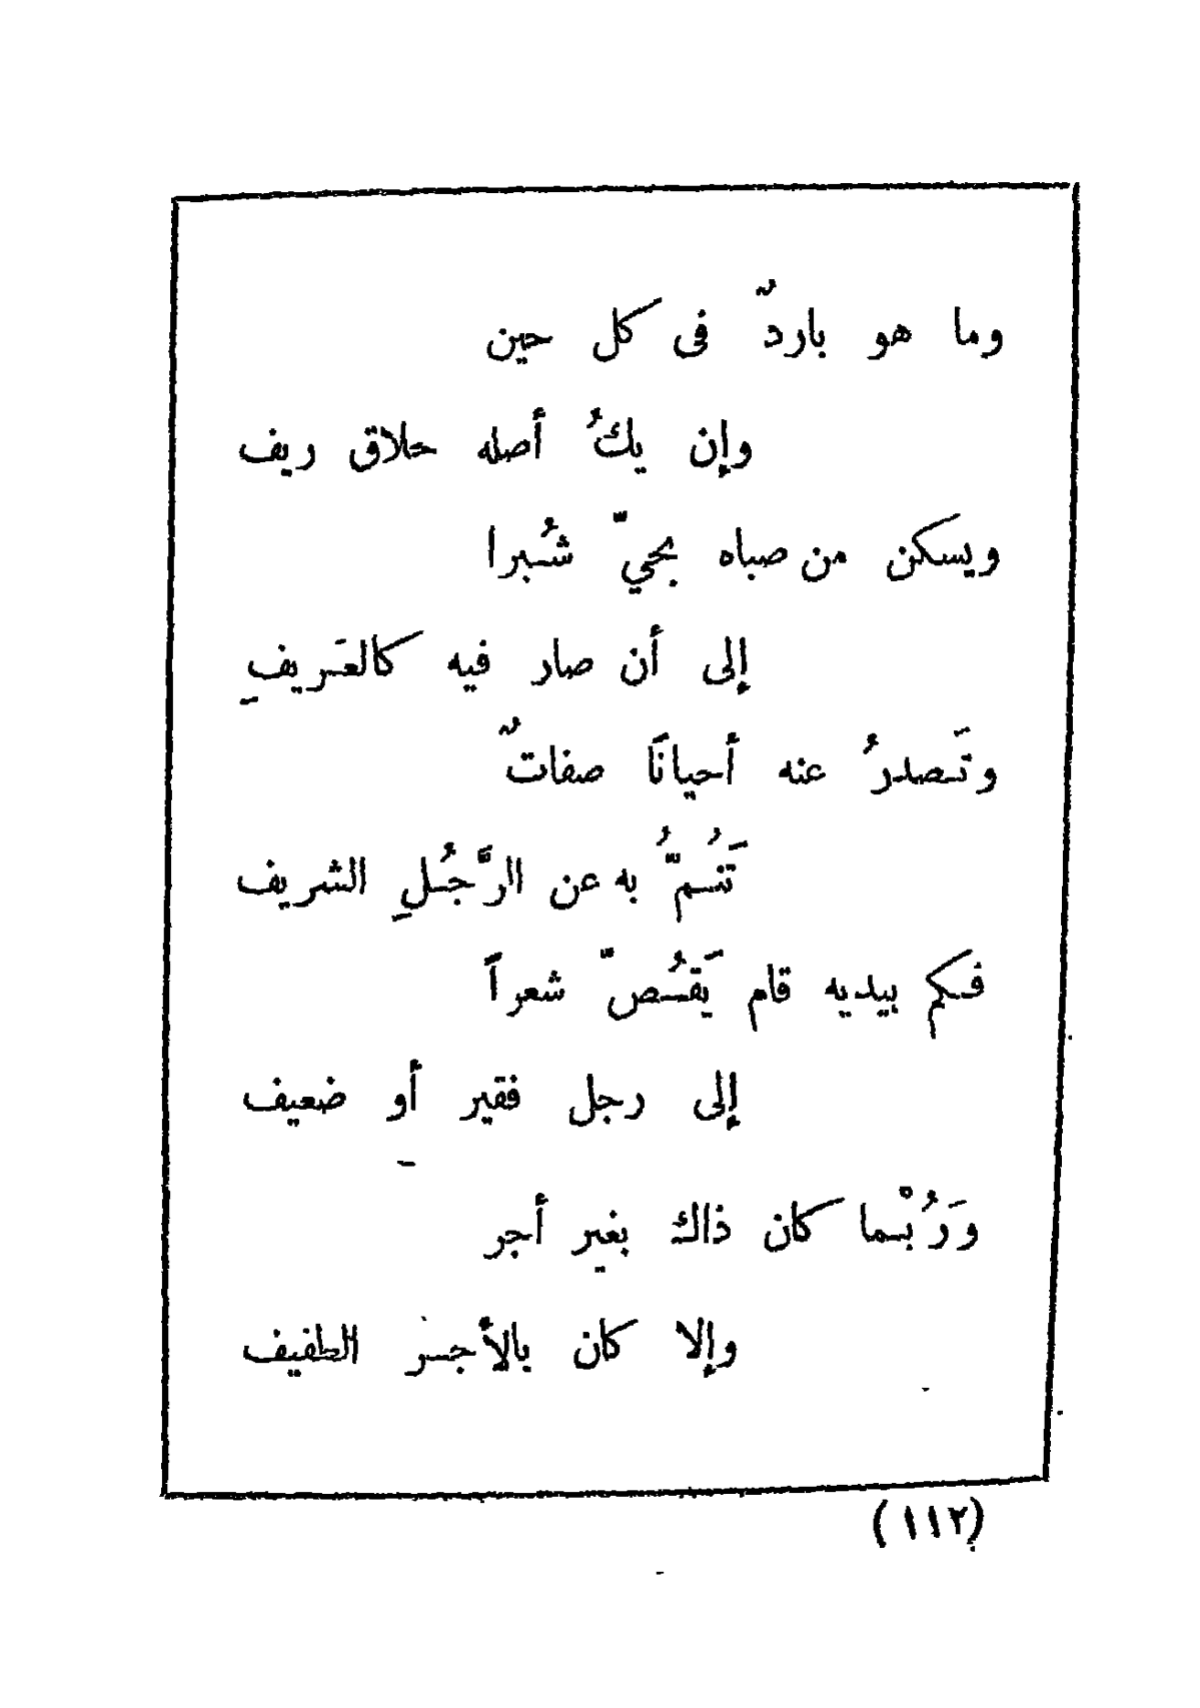 وما هو باردٌ فى كل حين
وإن يكُ أصله حلاق ريف
ويسكن من صباه بحيّ شُبرا
إلى أن صار فيه كالعَريفِ
وتَصدرُ عنه أحيانًا صفاتٌ
تَنُمّ ُ به عن االرَّجُلِ الشريف
فكم بيديه قام يَقُصّ شعراً
إلى رجل فقير أو ضعيف
وَرُبْما كان ذاك بغير أجر
وإلا كان بالأجر الطفيف
(١١٢)